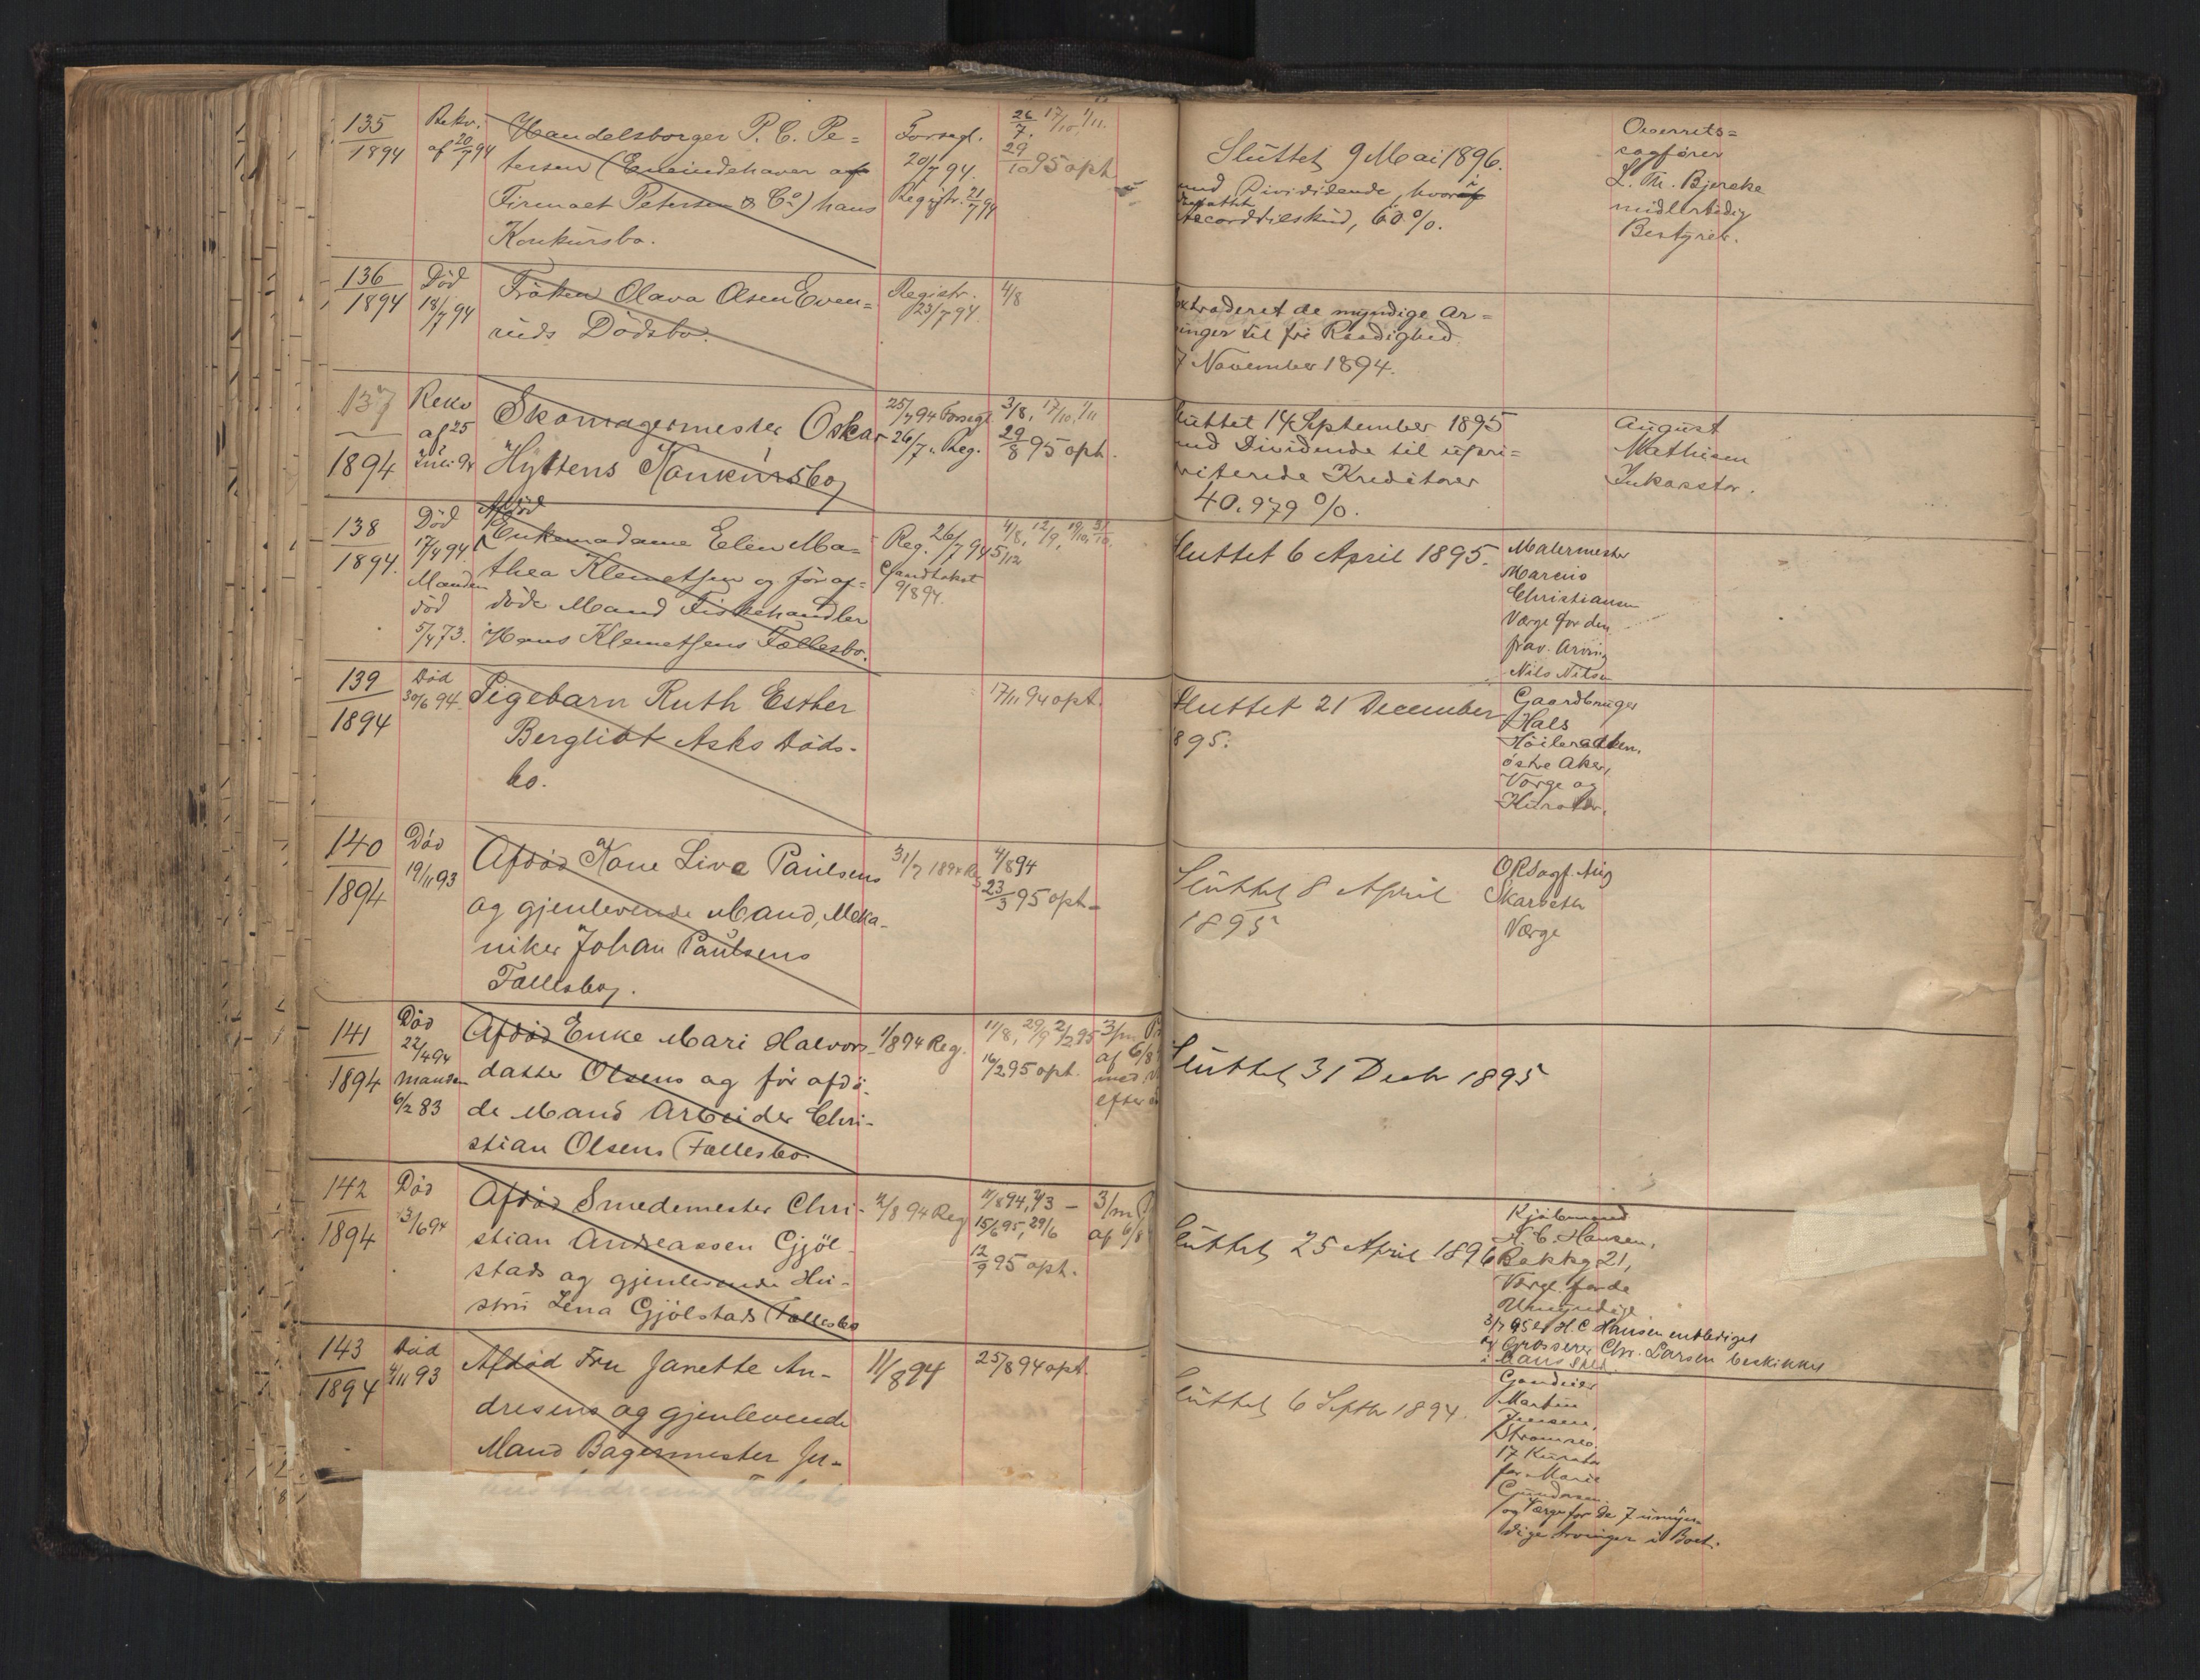 135
1894
Rekv.
af 20/7 94
Handelsborger P. C. Pe=
tersen (Eneindehaver af
Firmaet Petersen & Co) hans
Konkursbo.
Forsegl.
20/7 94.
Registr. 21/7 94
26/7. 17/10, 1/11.
29/10 95 opt
Sluttet 9 Mai 1896.
med Divididende, hvori
Accordtilskud, 60 %.
Overrets=
sagfører
L. Th. Bjercke
midlertidig
Bestyrer.
136
1894
Död
18/7 94
Fröken Olava Olsen Even=
ruds Dödsbo.
Registr.
23/7 94.
4/8
extraderet de myndige Ar=
vinger til fri Raadighed
7 November 1894.
137
1894
Rekv
af 25
Juli 94
Skomagermester Oskar
Hyttens Konkursbo
25/7 94 Forsegl.
26/7 " Reg.
3/8, 17/10, 1/11
29/8 95 opt.
Sluttet 14 September 1895
med Dividende til upri=
viterede Kreditorer
40.979 %.
August
Mathisen
Inkassator.
138
1894.
Död
17/4 94.
Manden
död
5/4 73.
Afdöd
Enkemadame Elen Ma=
thea Klemetsen og före af=
döde Mand Fiskehandler
Hans Klemetsens Fællesbo.
Reg. 26/7 94
Pandtakst
9/8 94.
4/8, 12/9, 19/10, 31/10.
5/12
Sluttet 6 April 1895.
Malermester
Marcus
Christiansen
Værge for den
frav. Arving
Nils Nilsen
139
1894
Död
30/6 94.
Pigebarn Ruth Esther
Bergliot Asks Döds-
bo.
17/11 94 opt.
Sluttet 21 December
1895.
Gaardbruger
Hals
östre Aker,
Værge og
Kurator.
140
1894
Död
19/11 93
Afdöd Kone Live Paulsens
og gjenlevende Mand, Meka-
niker Johan Paulsens
Fællesbo.
31/7 1894 Reg
4/8 94
23/3 95 opt.
Sluttet 8 April
1895
ORSagf. Aug
Skarseth
Værge
141
1894
Död
22/4 94
Manden
6/2 83
Afdöd Enke Mari Halvors-
datter Olsens og för afdö-
de Mand Arbeider Chri-
stian Olsens Fællesbo
1/8 94 Reg.
11/8, 29/9 2/2 95
16/2 95 opt.
3/m
af 6/8
med
efter
Sluttet 31 Decbr 1895
142
1894
Död
13/6 94
Afdöd Smedemester Chri-
stian Andreassen Gjöl-
stads og gjenlevende Hu-
stru Lena Gjölstads Fællesbo
2/8 94 Reg
11/8 94, 2/3 -
15/6 95, 29/6
12/9 95 opt.
3/m
af 6/8
Sluttet 25 April 1896
Kjöbmand
H. C. Hansen,
Bakkg 21,
Værge for de
Umyndige
3/7 95 er H. C Hansen entlediget
og Grosserer Chr. Larsen beskikket
i hans sted
143
1894
Död
4/11 93
Afdöd Fru Janette An-
dresens og gjenlevende
Mand Bagermester Ju-
11/8 94
25/8 94 opt.
Sluttet 6 Septbr 1894.
Gaardeier
Martin
Jensen,
Strømsv.
17 Kurator
for Marie
Gundersen
og Værge for de 7 umyn-
dige Arvinger i Boet.